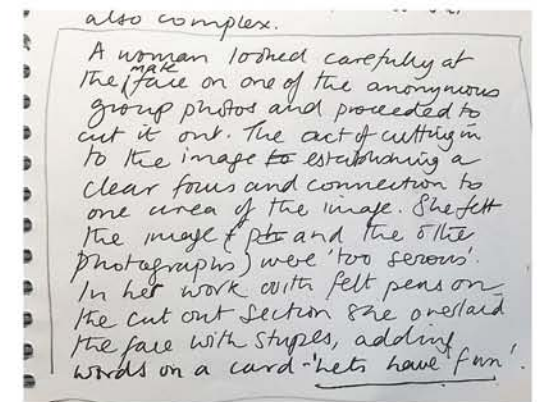 also complex.
A woman looked carefully at
the male face on one of the anonymous
group photos and proceeded to
cut it out. The act of cutting in
to the image to establishing a
clear focus and connection to
one area of the image. She felt
the image ( pho and the other
photographs) were 'too serous'.
In her work with felt pens on
the cut out section she overlaid
the face with stripes, adding
words on a card - 'lets have fun'.